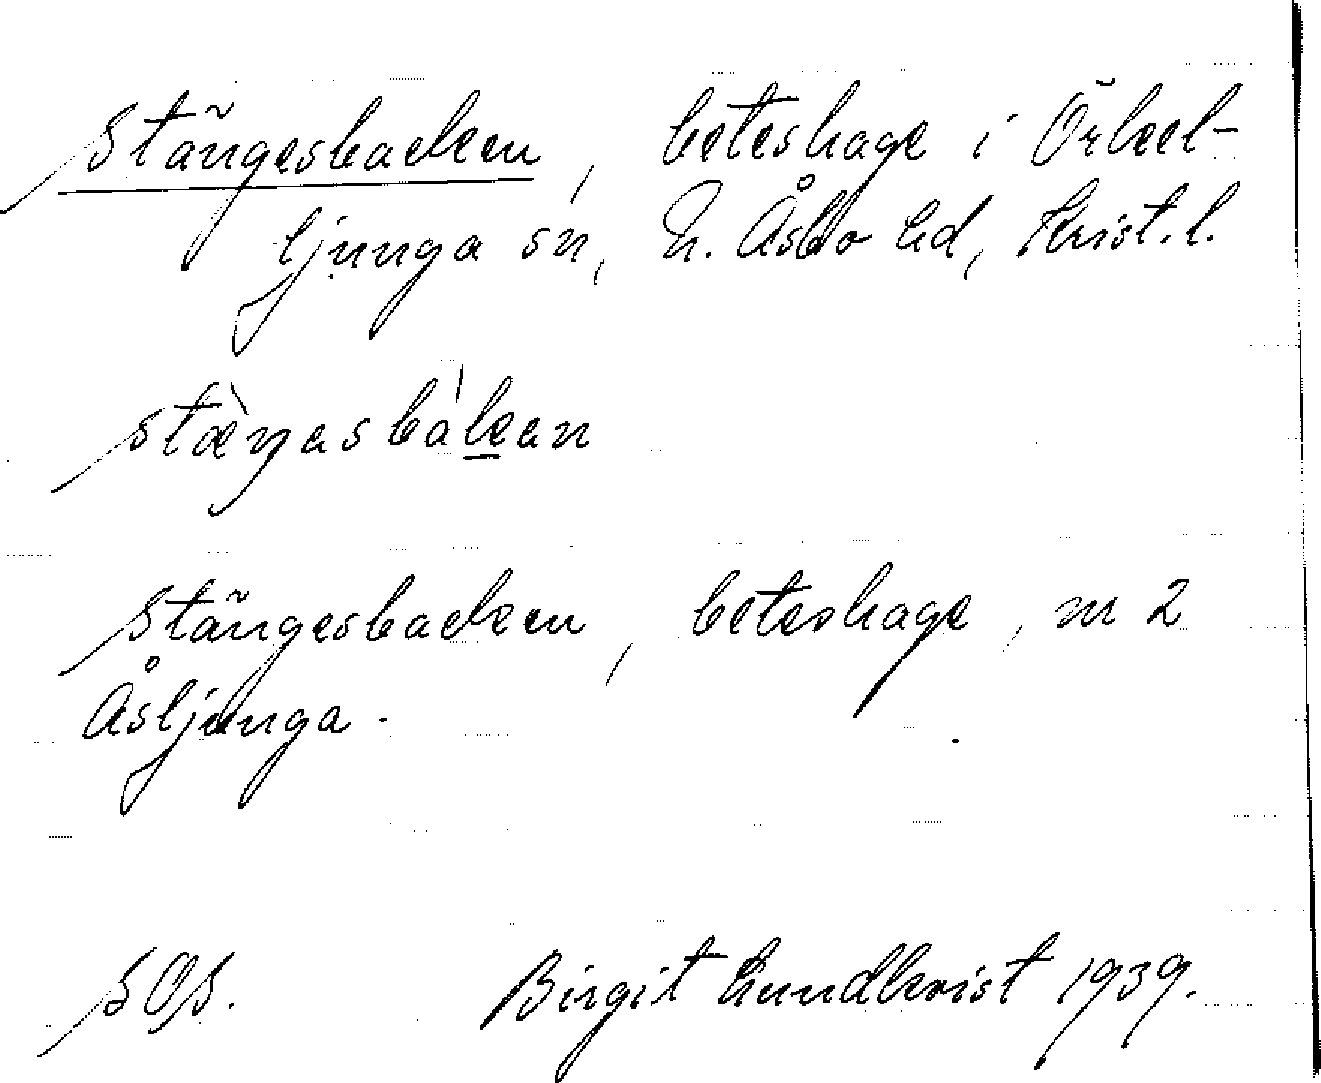 Stängesbacken, beteshage i Örkel-
ljunga sn, N. Åsbo hd, Krist. l.
stæ̀ŋasbàkan
Stängesbacken, beteshage, nr 2
Åsljunga.
SOS. Birgit Lundkvist 1939.